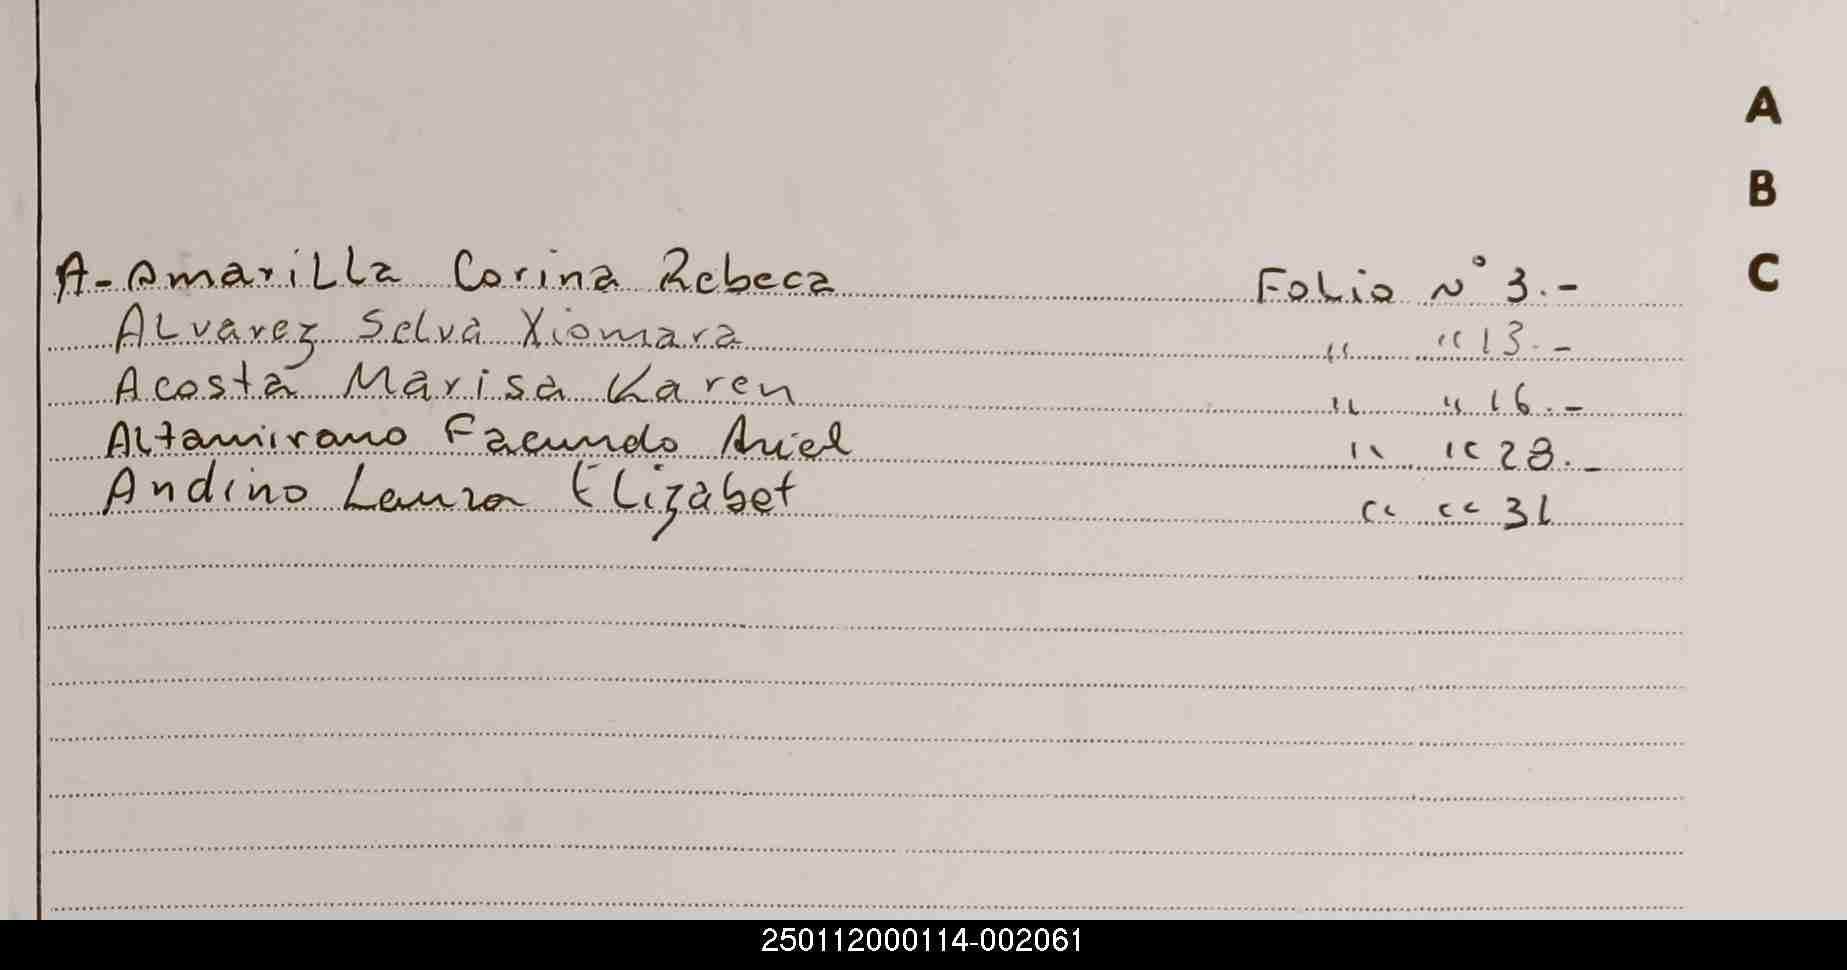 A
B
C
A- Amarilla Corina Rebeca Folio N° 3.-
Alvarez Selva Xiomara " " 13.-
Acosta Marisa Karen " " 16.-
Altamirano Facundo Ariel " " 28.-
Andino Laura Elizabet " " 31
250112000114-002061